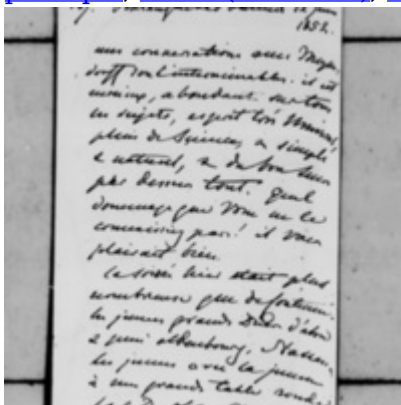 1852.
mes conversations avec Meyen-
dorff sont interminables. il est
curieux, abondant sur tous
les sujets, esprit très
plein de Science, a simple
e naturel, e du bon sens
par dessus tout. quel
dommage que Vous ne le
connaissiez pas! il vous
plairait bien.
la soirée hier était plus
nombreuse que de coutume.
les jeunes grands Ducs d'abord
e puis Altenbourg, Nassau.
les jeunes avec la jeunesse
à une grande table ronde